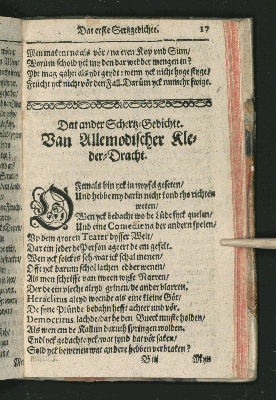 Dat erste Schertzgedichte. 17
Men maket na als vör/ na eren Kop und Sinn/
Worüm schold yck my den dar wedder mengen in?
Ydt mag gahn als ydt geydt: wenn yck nicht hoge stige/
So
Dat ander Schertz-Gedichte.
Van Allemodischer Kle-
der-Dracht.
Offtmals bin yck in twyfel
Und hebbe my darin nicht kond tho richten
weten/
Wen yck bedachte wo de Lüde sick quelen/
Und eine Comedie na der andern spelen/
Up dem groten Teater dysser Welt/
Dar ein jeder de Person ageert de em gefelt.
Wen yck solckes seh/ wat ick schal menen/
Offt yck darum schol lachen edder wenen/
Als men schrifft van tween wyse Narren/
Der de ein plecht alltyd grynen/ de ander blarren/
Heraclitus altyd weende als eine kleine Gör/
De syne Plünde bedahn hefft achter und vör.
Democritus lachde/ dat he den Bueck muste holden/
Als wen em de Kaldun daruth springen wolden.
Endlyck gedachte yck/ wat synd dat vör saken/
Schold yck bewenen wat andere hebben verbraken?
B iij Myn